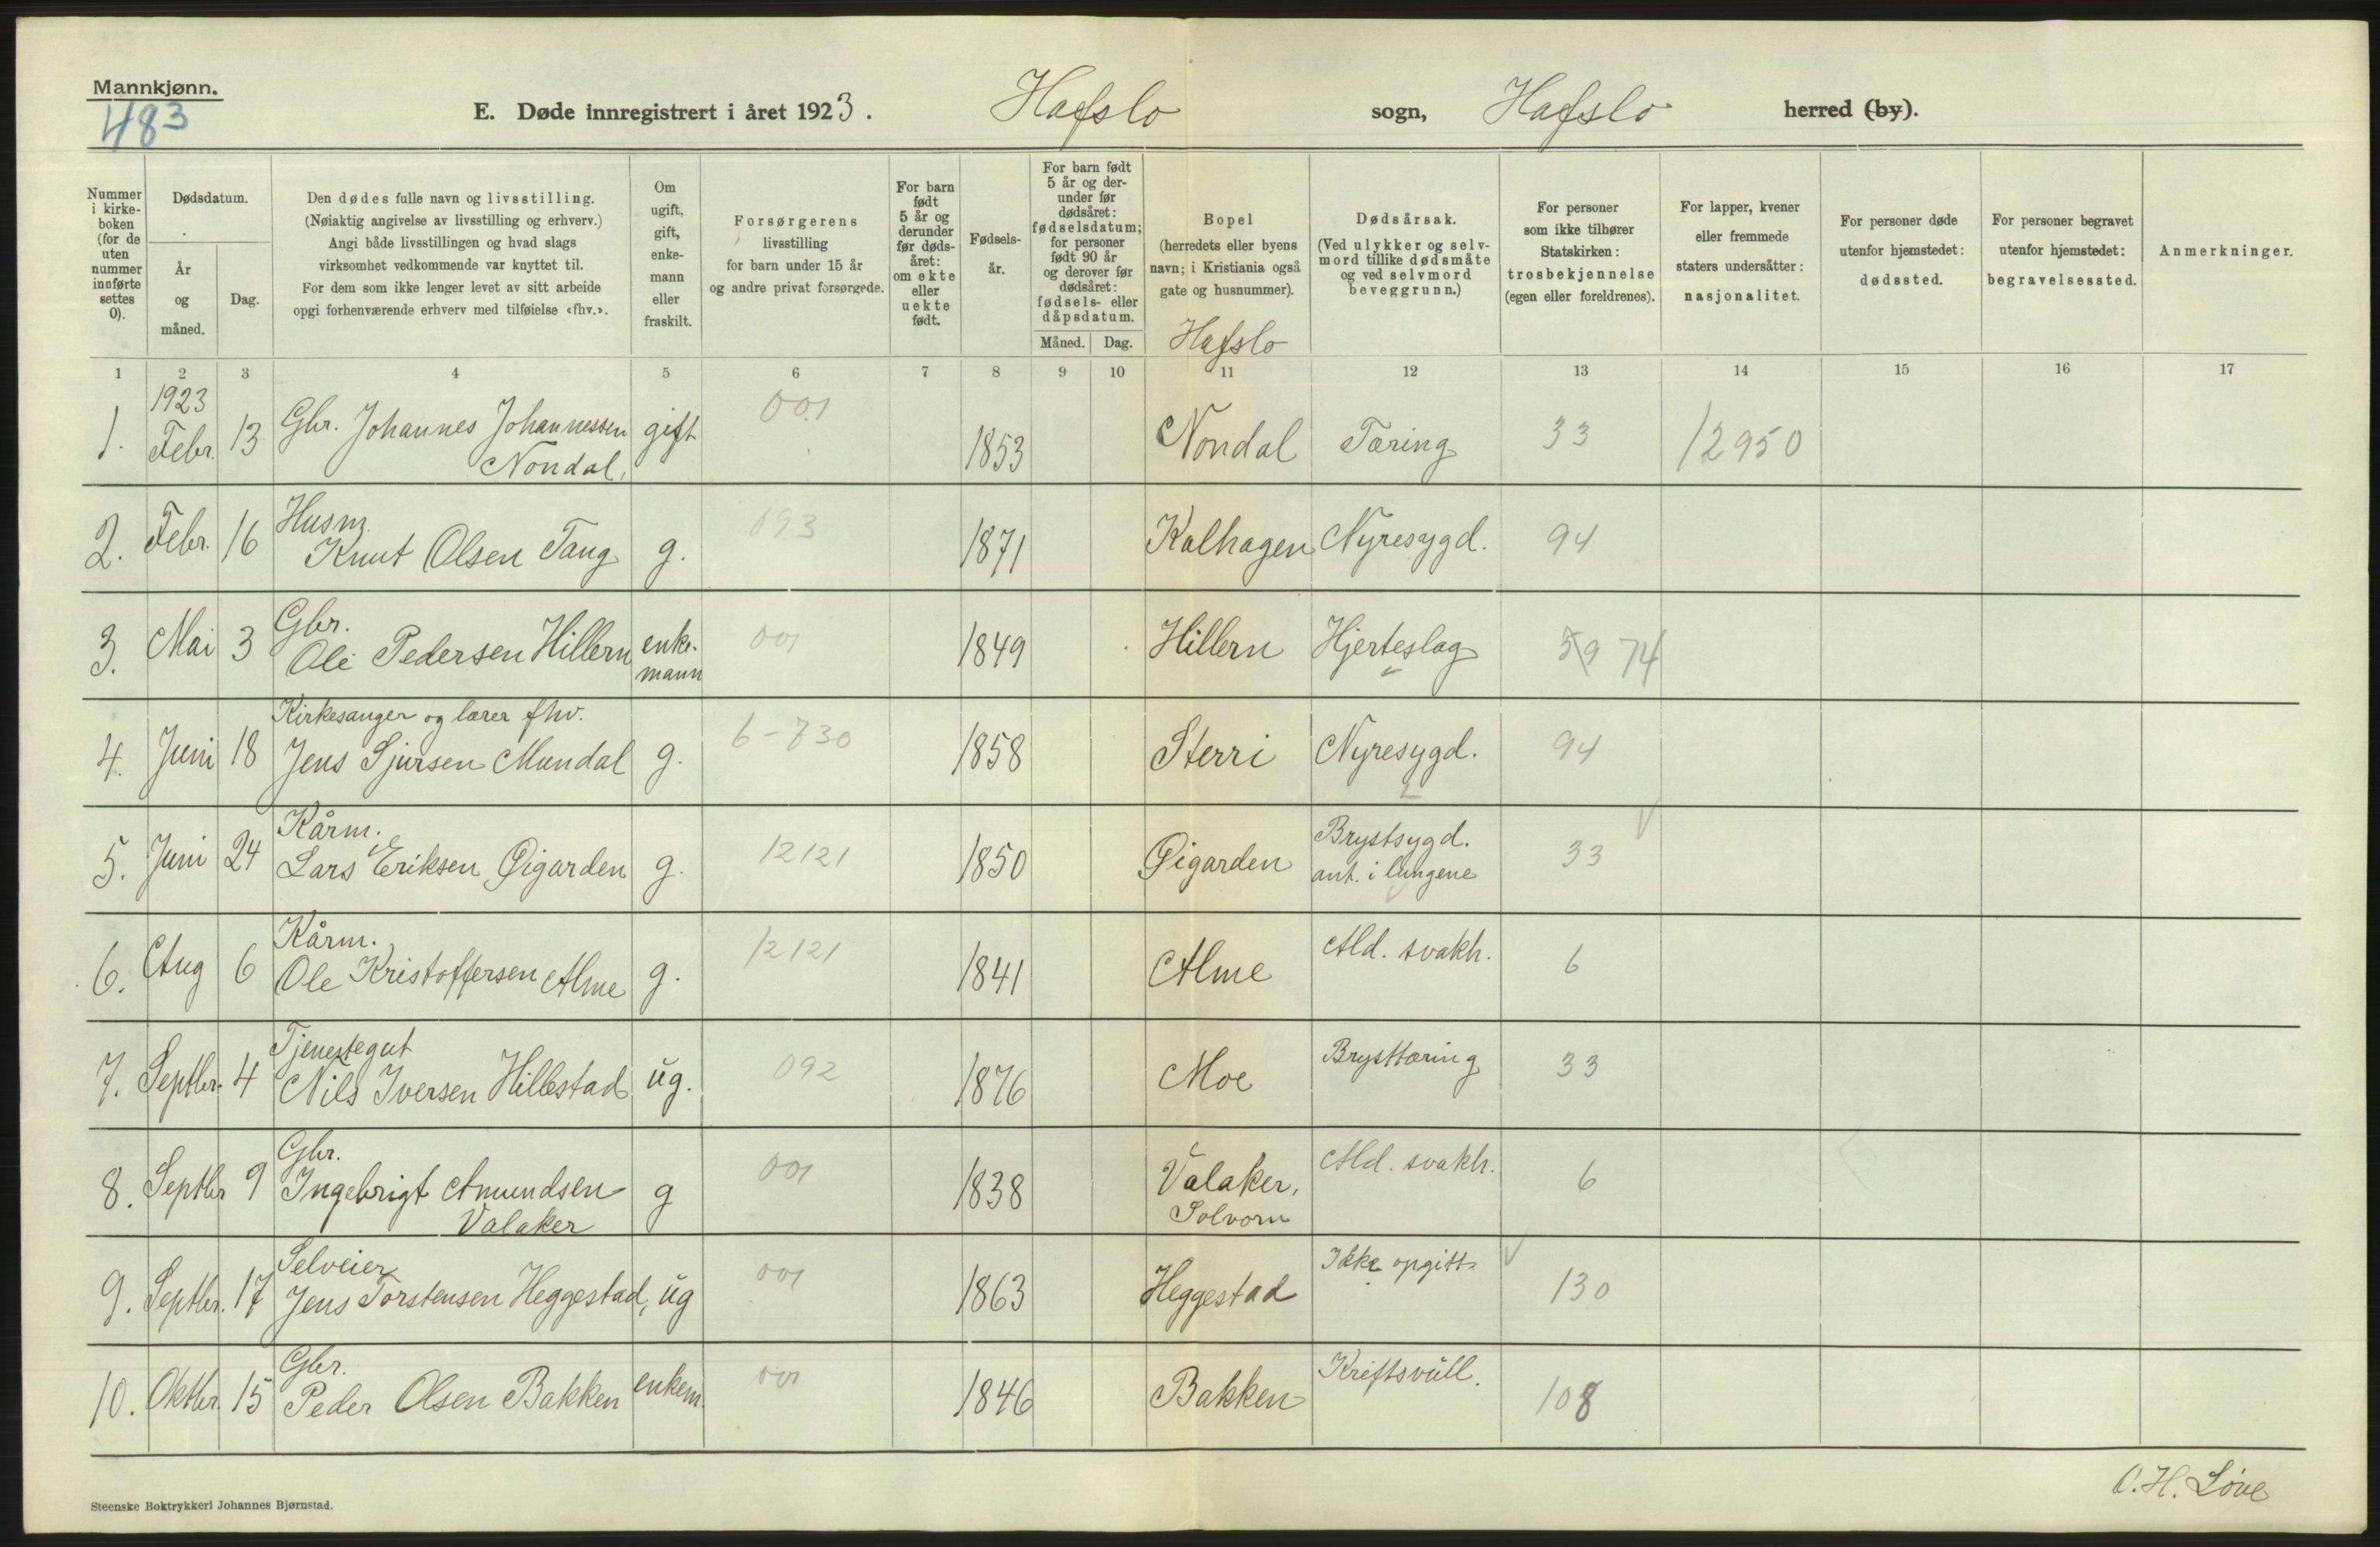 Mannkjønn.
483
E. Døde innregistrert i året 1923. Hafslo sogn, Hafslo herred (by).
Nummer i kirke- boken (for de uten nummer innførte settes 0).
Dødsdatum.
År og måned.
Dag.
Den dødes fulle navn og livsstilling.
(Nøiaktig angivelse av livsstilling og erhverv.)
Angi både livsstillingen og hvad slags
virksomhet vedkommende var knyttet til.
For dem som ikke lenger levet av sitt arbeide
opgi forhenværende erhverv med tilføielse «fhv.».
Om ugift, gift, enke- mann eller fraskilt.
Forsørgerens
livsstilling
for barn under 15 år
og andre privat forsørgede.
For barn født 5 år og derunder før døds- året: om ekte eller uekte født.
Fødsels- år.
For barn født 5 år og der- under før dødsåret: fødselsdatum; for personer født 90 år og derover før dødsåret: fødsels- eller dåpsdatum.
Måned. Dag.
Bopel
(herredets eller byens
navn; i Kristiania også
gate og husnummer).
Hafslo
Dødsårsak.
(Ved ulykker og selv-
mord tillike dødsmåte
og ved selvmord
beveggrunn.)
For personer
som ikke tilhører
Statskirken:
trosbekjennelse
(egen eller foreldrenes).
For lapper, kvener
eller fremmede
staters undersåtter:
nasjonalitet.
For personer døde
utenfor hjemstedet:
dødssted.
For personer begravet
utenfor hjemstedet:
begravelsessted.
Anmerkninger.
1 2 3 4 5 6 7 8 9 10 11 12 13 14 15 16 17
1923
1. Febr. 13 Gbr. Johannes Johannessen gift 001 1853 Nondal Tæring 33 12950
Nondal,
Husm.
2. Febr. 16 Knut Olsen Tang g. 093 1871 Kalhagen Nyresygd. 94
Gbr.
3. Mai 3 Ole Pedersen Hillern enke- 001 1849 Hillern Hjerteslag 59 74
mann
Kirkesanger og lærer fhv.
4. Juni 18 Jens Sjursen Mundal g. 6-730 1858 Sterri Nyresygd. 94
Kårm. Brystsygd.
5. Juni 24 Lars Eriksen Øigarden g. 12121 1850 Øigarden ant. i lungene 33
Kårm.
6. Aug 6 Ole Kristoffersen Alme g. 12121 1841 Alme Ald. svakh. 6
Tjenestegut
7. Septbr. 4 Nils Iversen Hillestad ug. 092 1876 Moe Brysttæring 33
Gbr.
8. Septbr 9 Ingebrigt Amundsen g 001 1838 Valaker, Ald. svakh. 6
Valaker Solvorn
Selveier
9. Septbr. 17 Jens Torstensen Heggestad, ug 001 1863 Heggestad Ikke opgitt 130
Gbr.
10. Oktbr. 15 Peder Olsen Bakken enkem. 001 1846 Bakken Kreftsvull. 108
O. H. Løve
Steenske Boktrykkeri Johannes Bjørnstad.